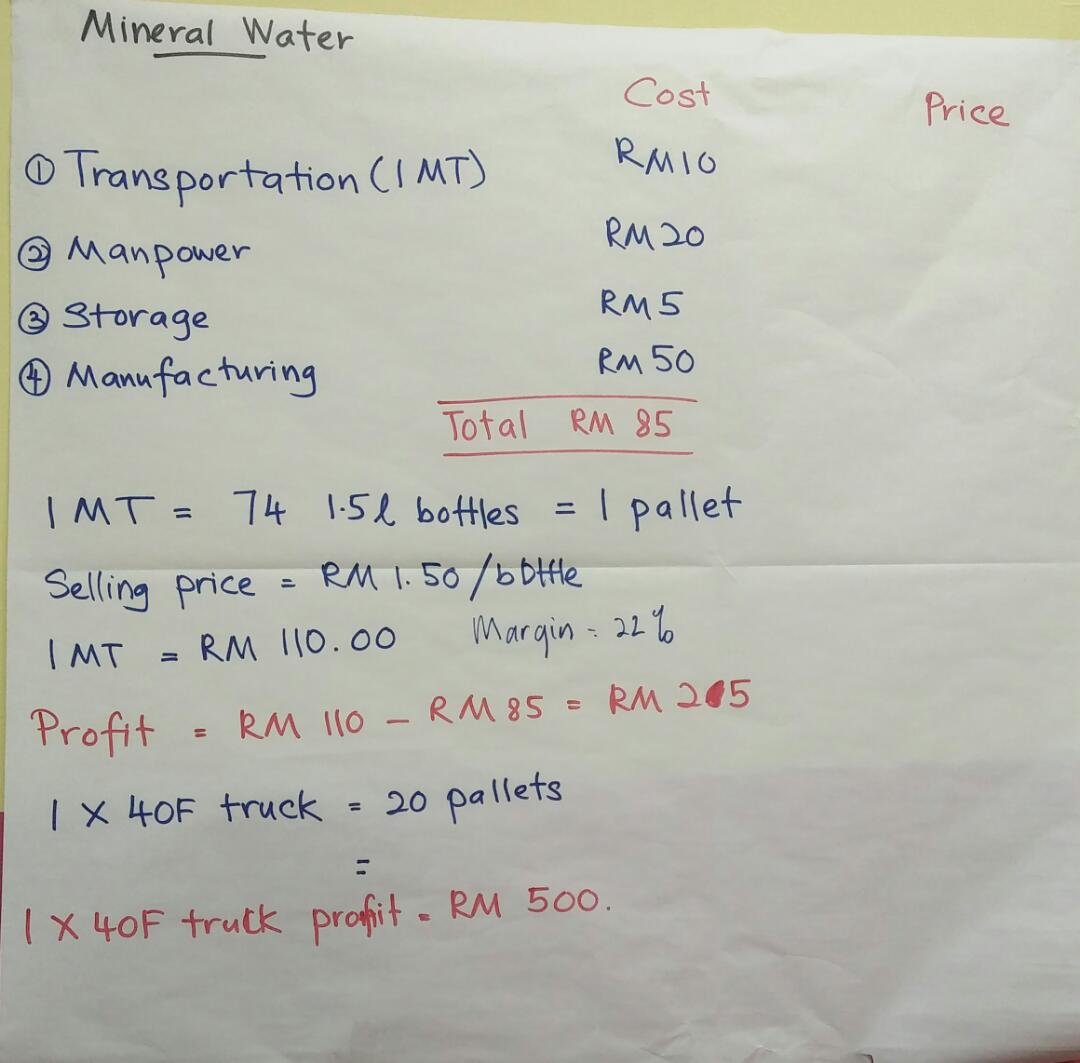 Mineral Water
Cost Price
① Transportation (1 MT) RM10
② Manpower RM20
③ Storage RM5
④ Manufacturing RM 50
Total RM 85
1 MT = 74 1.5l bottles = 1 pallet
Selling price = RM 1.50/bottle
1 MT = RM 110.00 Margin = 22%
Profit = RM 110 - RM 85 = RM 25
1 X 40F truck = 20 pallets
=
1 X 40F truck profit = RM 500.